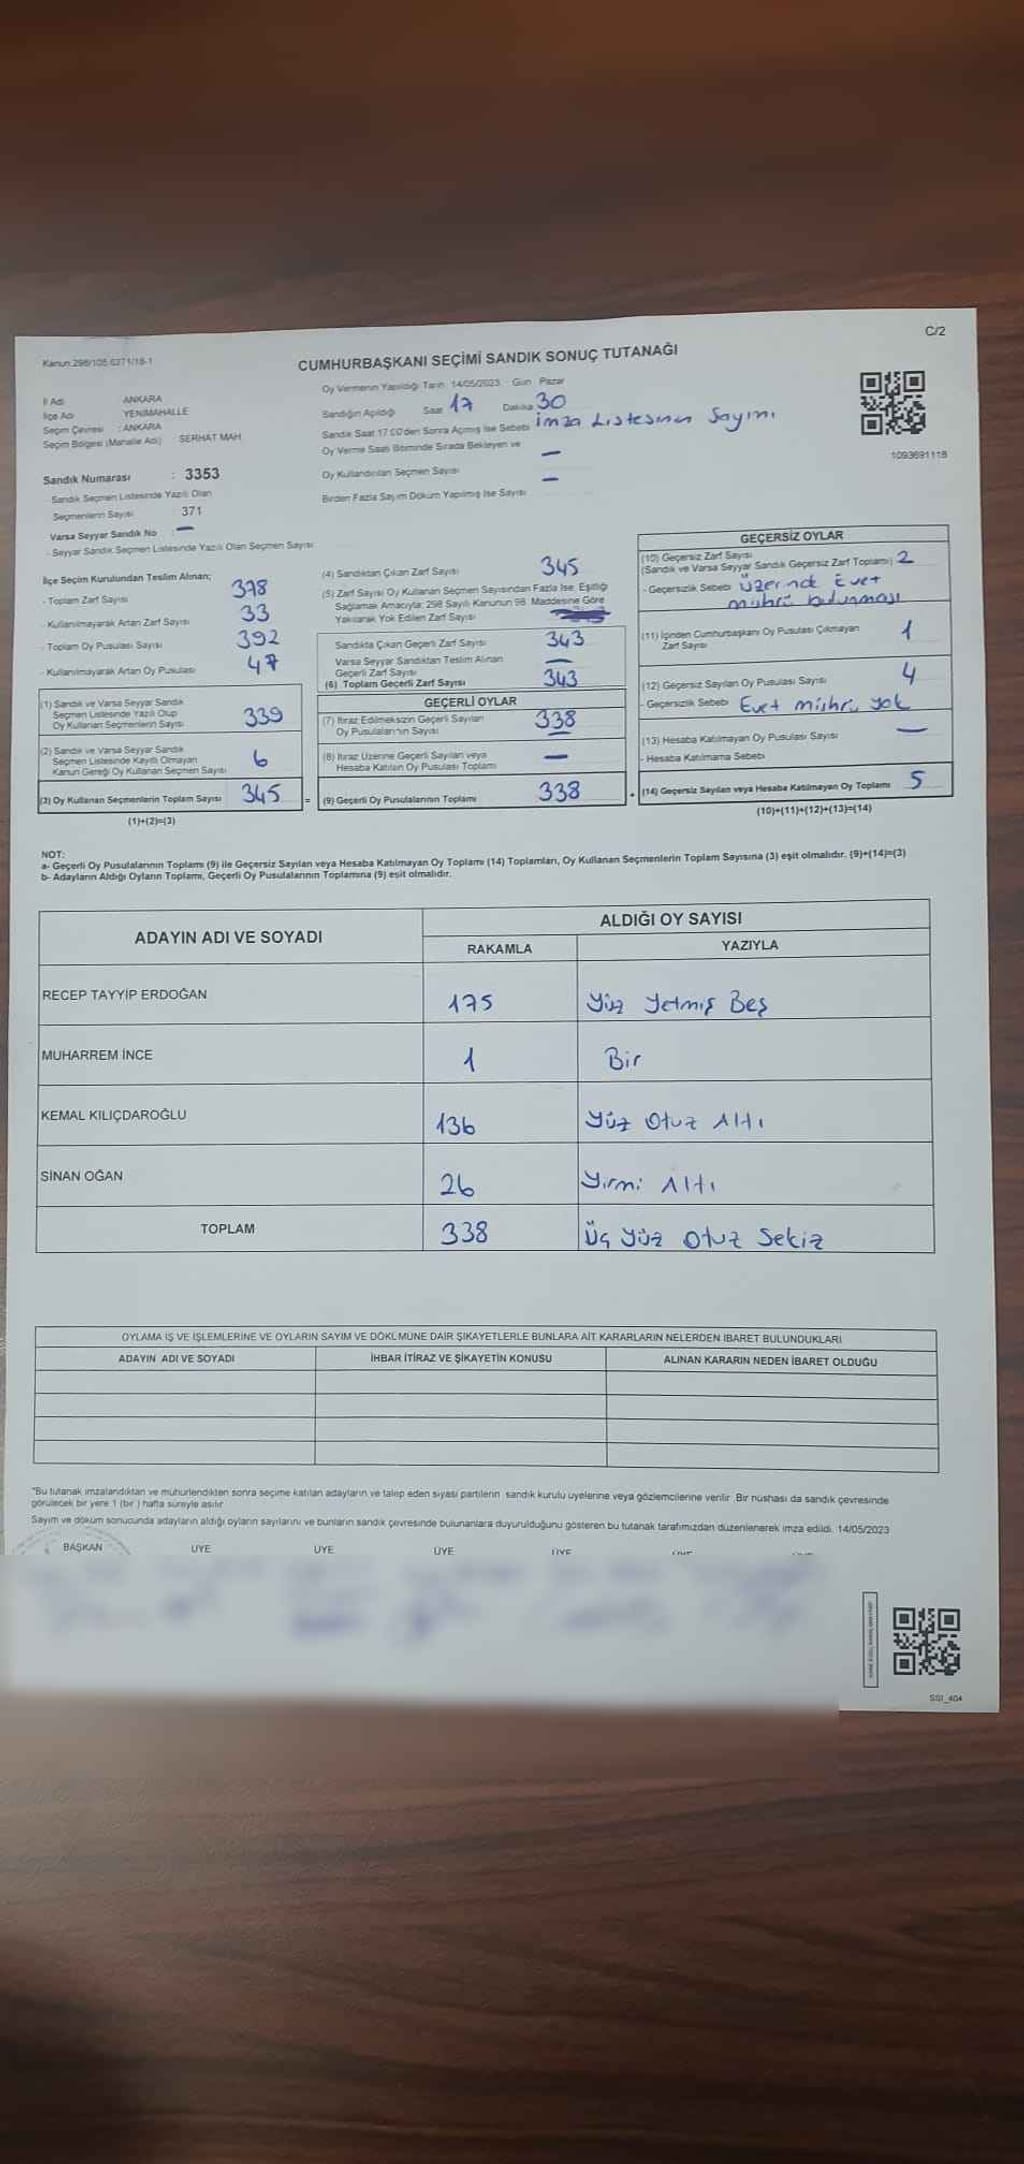 C/2
Kanun:298/105 6271/18-1
CUMHURBAŞKANI SEÇİMİ SANDIK SONUÇ TUTANAĞI
İl Adı ANKARA
İlçe Adı YENİMAHALLE
Seçim Çevresi : ANKARA
Seçim Bölgesi (Mahalle Adı) SERHAT MAH
Oy Vermenin Yapıldığı Tarih 14/05/2023 - Gün Pazar
Sandığın Açıldığı Saat 17 Dakika 30
Sandık Saat 17:00'den Sonra Açmış İse Sebebi İmza Listesinin Sayımı
Oy Verme Saati Bitiminde Sırada Bekleyen ve
Oy Kullandırılan Seçmen Sayısı —
Birden Fazla Sayım Döküm Yapılmış İse Sayısı —
1093691118
Sandık Numarası : 3353
- Sandık Seçmen Listesinde Yazılı Olan
Seçmenlerin Sayısı 371
Varsa Seyyar Sandık No : —
- Seyyar Sandık Seçmen Listesinde Yazılı Olan Seçmen Sayısı
İlçe Seçim Kurulundan Teslim Alınan;
- Toplam Zarf Sayısı 378
- Kullanılmayarak Artan Zarf Sayısı 33
- Toplam Oy Pusulası Sayısı 392
- Kullanılmayarak Artan Oy Pusulası 47
(1) Sandık ve Varsa Seyyar Sandık
Seçmen Listesinde Yazılı Olup
Oy Kullanan Seçmenlerin Sayısı 339
(2) Sandık ve Varsa Seyyar Sandık
Seçmen Listesinde Kayıtlı Olmayan
Kanun Gereği Oy Kullanan Seçmen Sayısı 6
(3) Oy Kullanan Seçmenlerin Toplam Sayısı 345 =
(1)+(2)=(3)
(4) Sandıktan Çıkan Zarf Sayısı 345
(5) Zarf Sayısı Oy Kullanan Seçmen Sayısından Fazla İse, Eşitliği
Sağlamak Amacıyla; 298 Sayılı Kanunun 98. Maddesine Göre
Yakılarak Yok Edilen Zarf Sayısı
Sandıkta Çıkan Geçerli Zarf Sayısı 343
Varsa Seyyar Sandıktan Teslim Alınan
Geçerli Zarf Sayısı —
(6) Toplam Geçerli Zarf Sayısı 343
GEÇERLİ OYLAR
(7) İtiraz Edilmeksizin Geçerli Sayılan
Oy Pusulalarının Sayısı 338
(8) İtiraz Üzerine Geçerli Sayılan veya
Hesaba Katılan Oy Pusulası Toplamı —
(9) Geçerli Oy Pusulalarının Toplamı 338 +
GEÇERSİZ OYLAR
(10) Geçersiz Zarf Sayısı
(Sandık ve Varsa Seyyar Sandık Geçersiz Zarf Toplamı) 2
- Geçersizlik Sebebi Üzerinde Evet
mührü bulunması
(11) İçinden Cumhurbaşkanı Oy Pusulası Çıkmayan
Zarf Sayısı 1
(12) Geçersiz Sayılan Oy Pusulası Sayısı 4
- Geçersizlik Sebebi Evet mührü yok
(13) Hesaba Katılmayan Oy Pusulası Sayısı —
- Hesaba Katılmama Sebebi
(14) Geçersiz Sayılan veya Hesaba Katılmayan Oy Toplamı 5
(10)+(11)+(12)+(13)=(14)
NOT:
a- Geçerli Oy Pusulalarının Toplamı (9) ile Geçersiz Sayılan veya Hesaba Katılmayan Oy Toplamı (14) Toplamları, Oy Kullanan Seçmenlerin Toplam Sayısına (3) eşit olmalıdır. (9)+(14)=(3)
b- Adayların Aldığı Oyların Toplamı, Geçerli Oy Pusulalarının Toplamına (9) eşit olmalıdır.
ADAYIN ADI VE SOYADI ALDIĞI OY SAYISI
RAKAMLA YAZIYLA
RECEP TAYYİP ERDOĞAN 175 Yüz Yetmiş Beş
MUHARREM İNCE 1 Bir
KEMAL KILIÇDAROĞLU 136 Yüz Otuz Altı
SİNAN OĞAN 26 Yirmi Altı
TOPLAM 338 Üç Yüz Otuz Sekiz
OYLAMA İŞ VE İŞLEMLERİNE VE OYLARIN SAYIM VE DÖKÜMÜNE DAİR ŞİKAYETLERLE BUNLARA AİT KARARLARIN NELERDEN İBARET BULUNDUKLARI
ADAYIN ADI VE SOYADI İHBAR İTİRAZ VE ŞİKAYETİN KONUSU ALINAN KARARIN NEDEN İBARET OLDUĞU
"Bu tutanak imzalandıktan ve mühürlendikten sonra seçime katılan adayların ve talep eden siyasi partilerin sandık kurulu üyelerine veya gözlemcilerine verilir. Bir nüshası da sandık çevresinde
görülecek bir yere 1 (bir) hafta süreyle asılır.
Sayım ve döküm sonucunda adayların aldığı oyların sayılarını ve bunların sandık çevresinde bulunanlara duyurulduğunu gösteren bu tutanak tarafımızdan düzenlenerek imza edildi. 14/05/2023
BAŞKAN ÜYE ÜYE ÜYE ÜYE
SSI_404